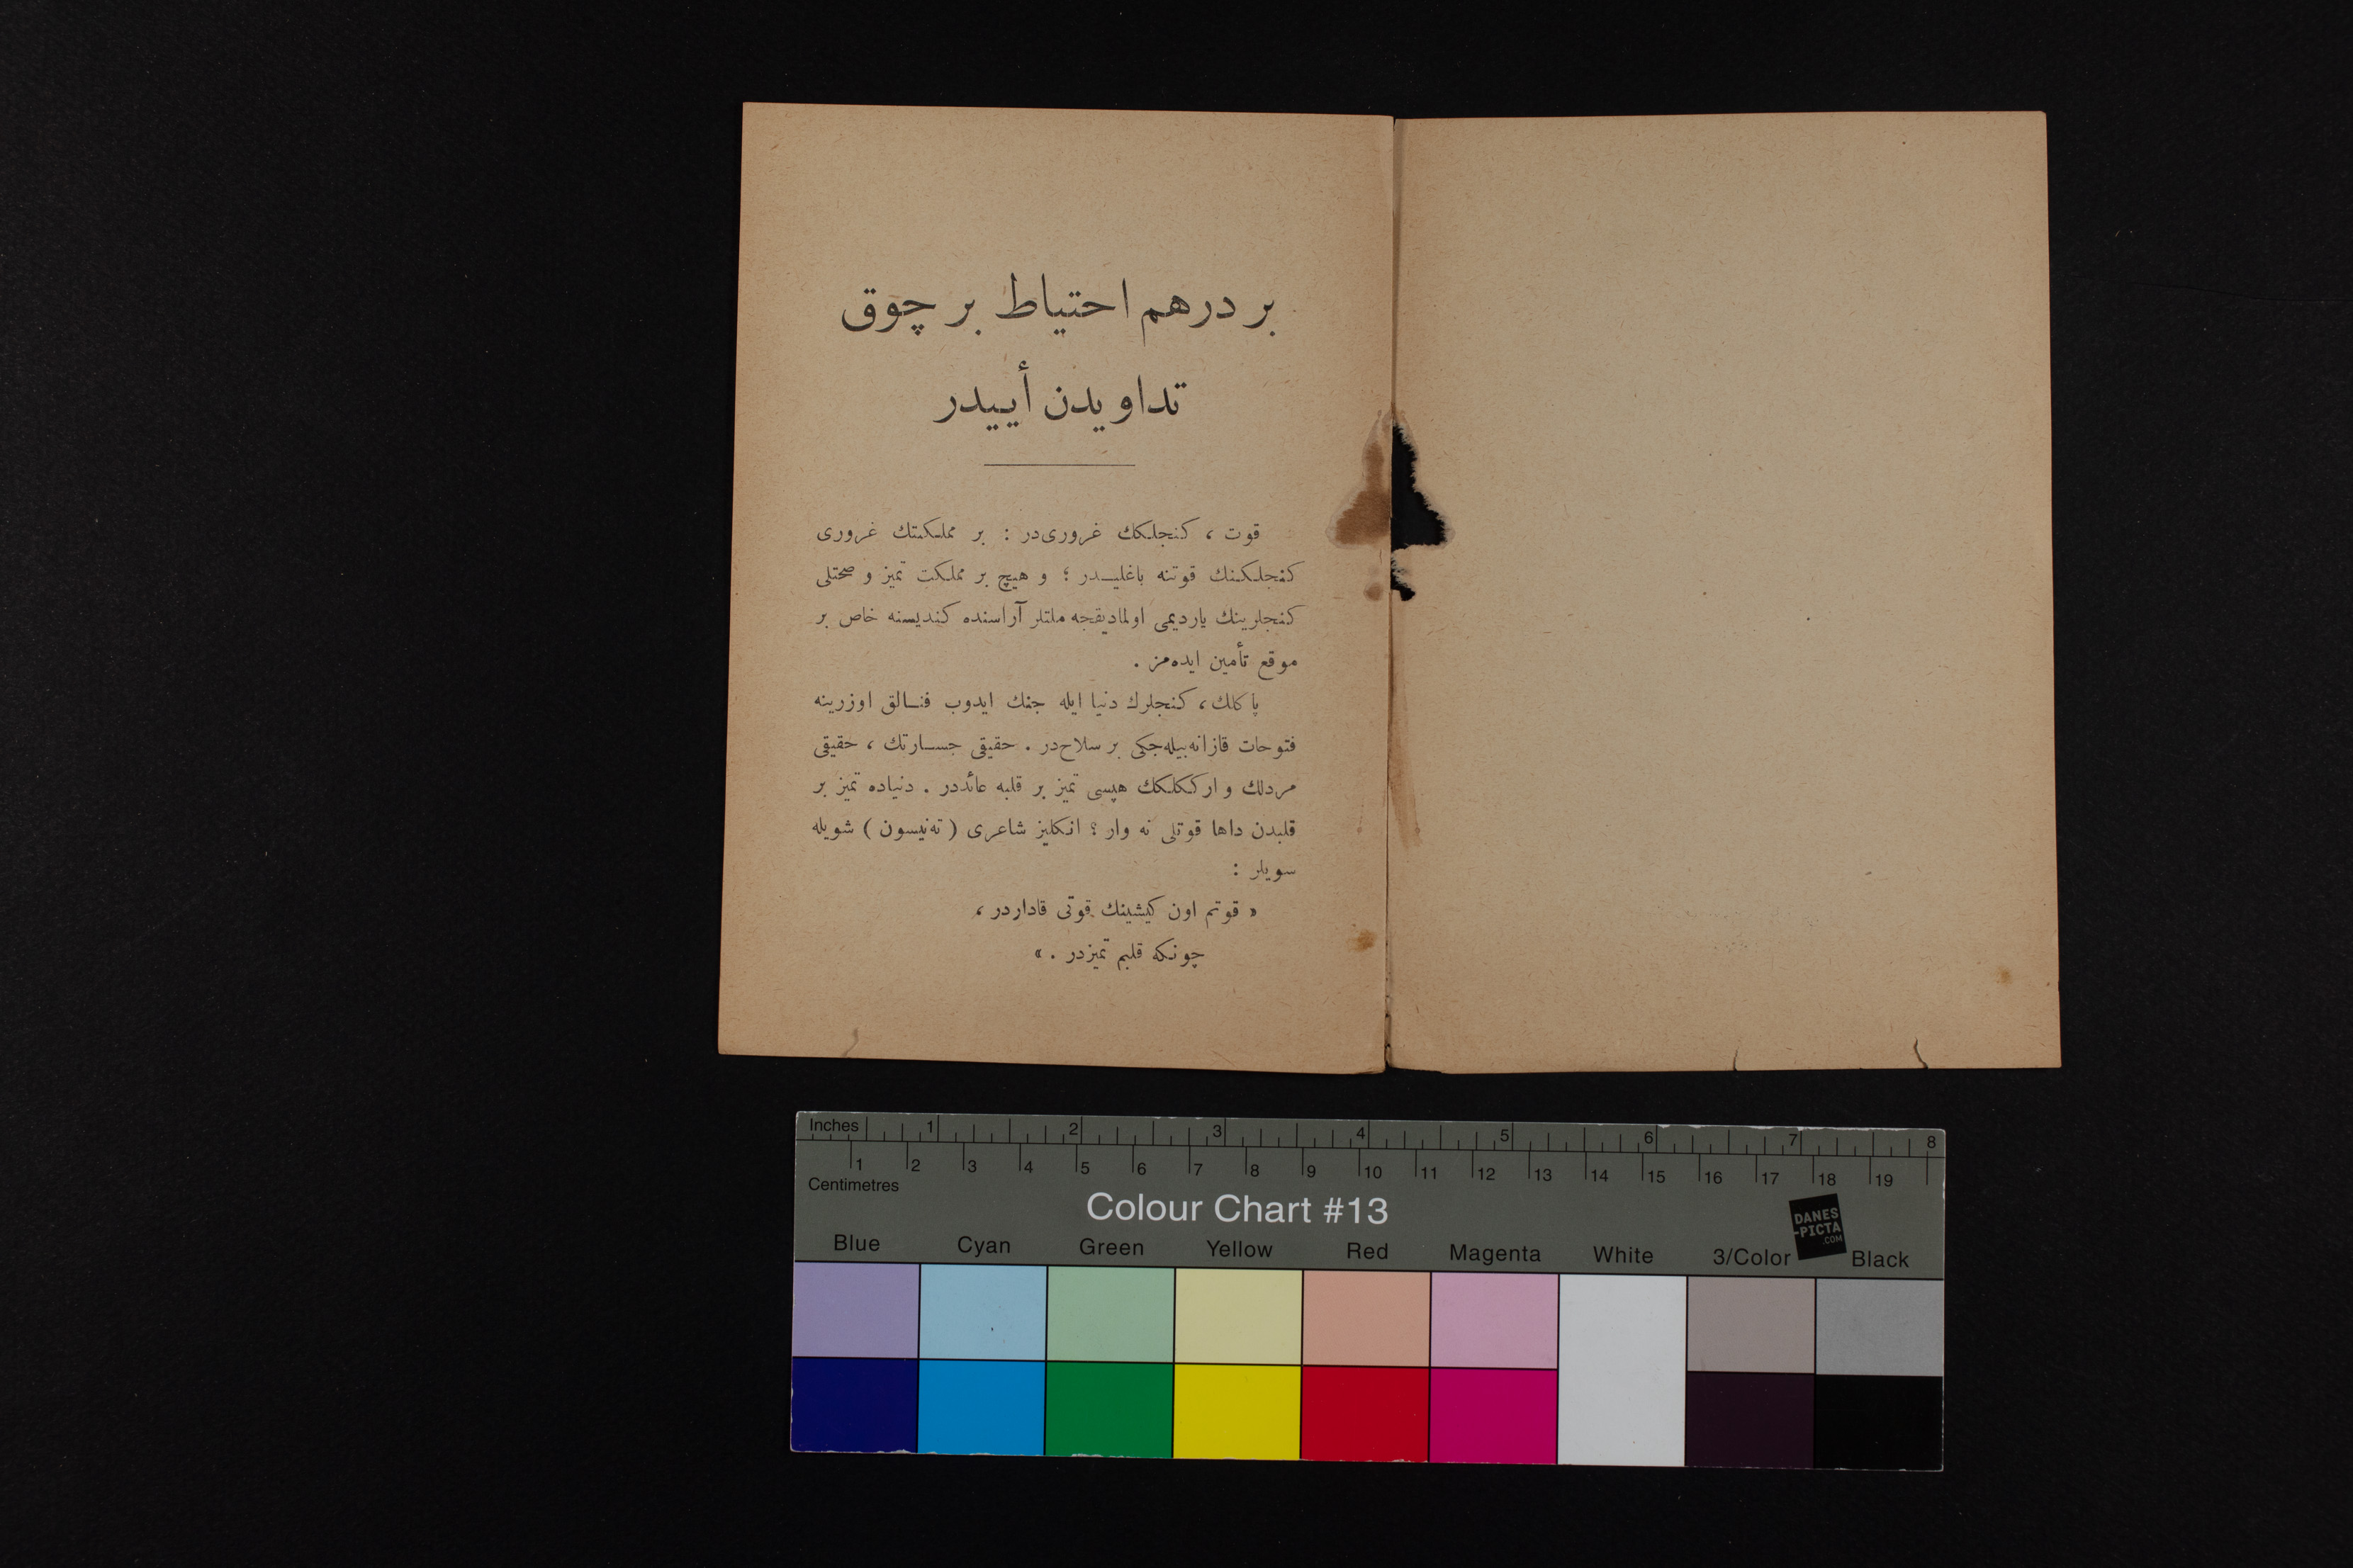 بر درهم احتياط بر چوق
تداويدن أييدر
قوت ، كنجلكك غروری‌در : بر مملكتك غروری
كنجلكنك قوتنه باغليـدر ؛ و هيچ بر مملكت تميز و صحتلی
كنجلرينك يارديمی اولماديقجه ملتلر آراسنده كنديسنه خاص بر
موقع تأمين ايده‌مز .
پاكلك ، كنجلرك دنيا ايله جنك ايدوب فنـالق اوزرينه
فتوحات قازانه‌بيله‌جكی بر سلاح‌در . حقيقی جسـارتك ، حقيقی
مردلك و اركـكلكك هپسی تميز بر قلبه عائددر . دنياده تميز بر
قلبدن داها قوتلی نه وار ؟ انكليز شاعری ( ته‌نيسون ) شويله
سويلر :
« قوتم اون كيشينك قوتی قاداردر ،
چونكه قلبم تميزدر . »
Inches 1 2 3 4 5 6 7 8
1 2 3 4 5 6 7 8 9 10 11 12 13 14 15 16 17 18 19
Centimetres
Colour Chart #13
DANES
-PICTA
.COM
Blue Cyan Green Yellow Red Magenta White 3/Color Black